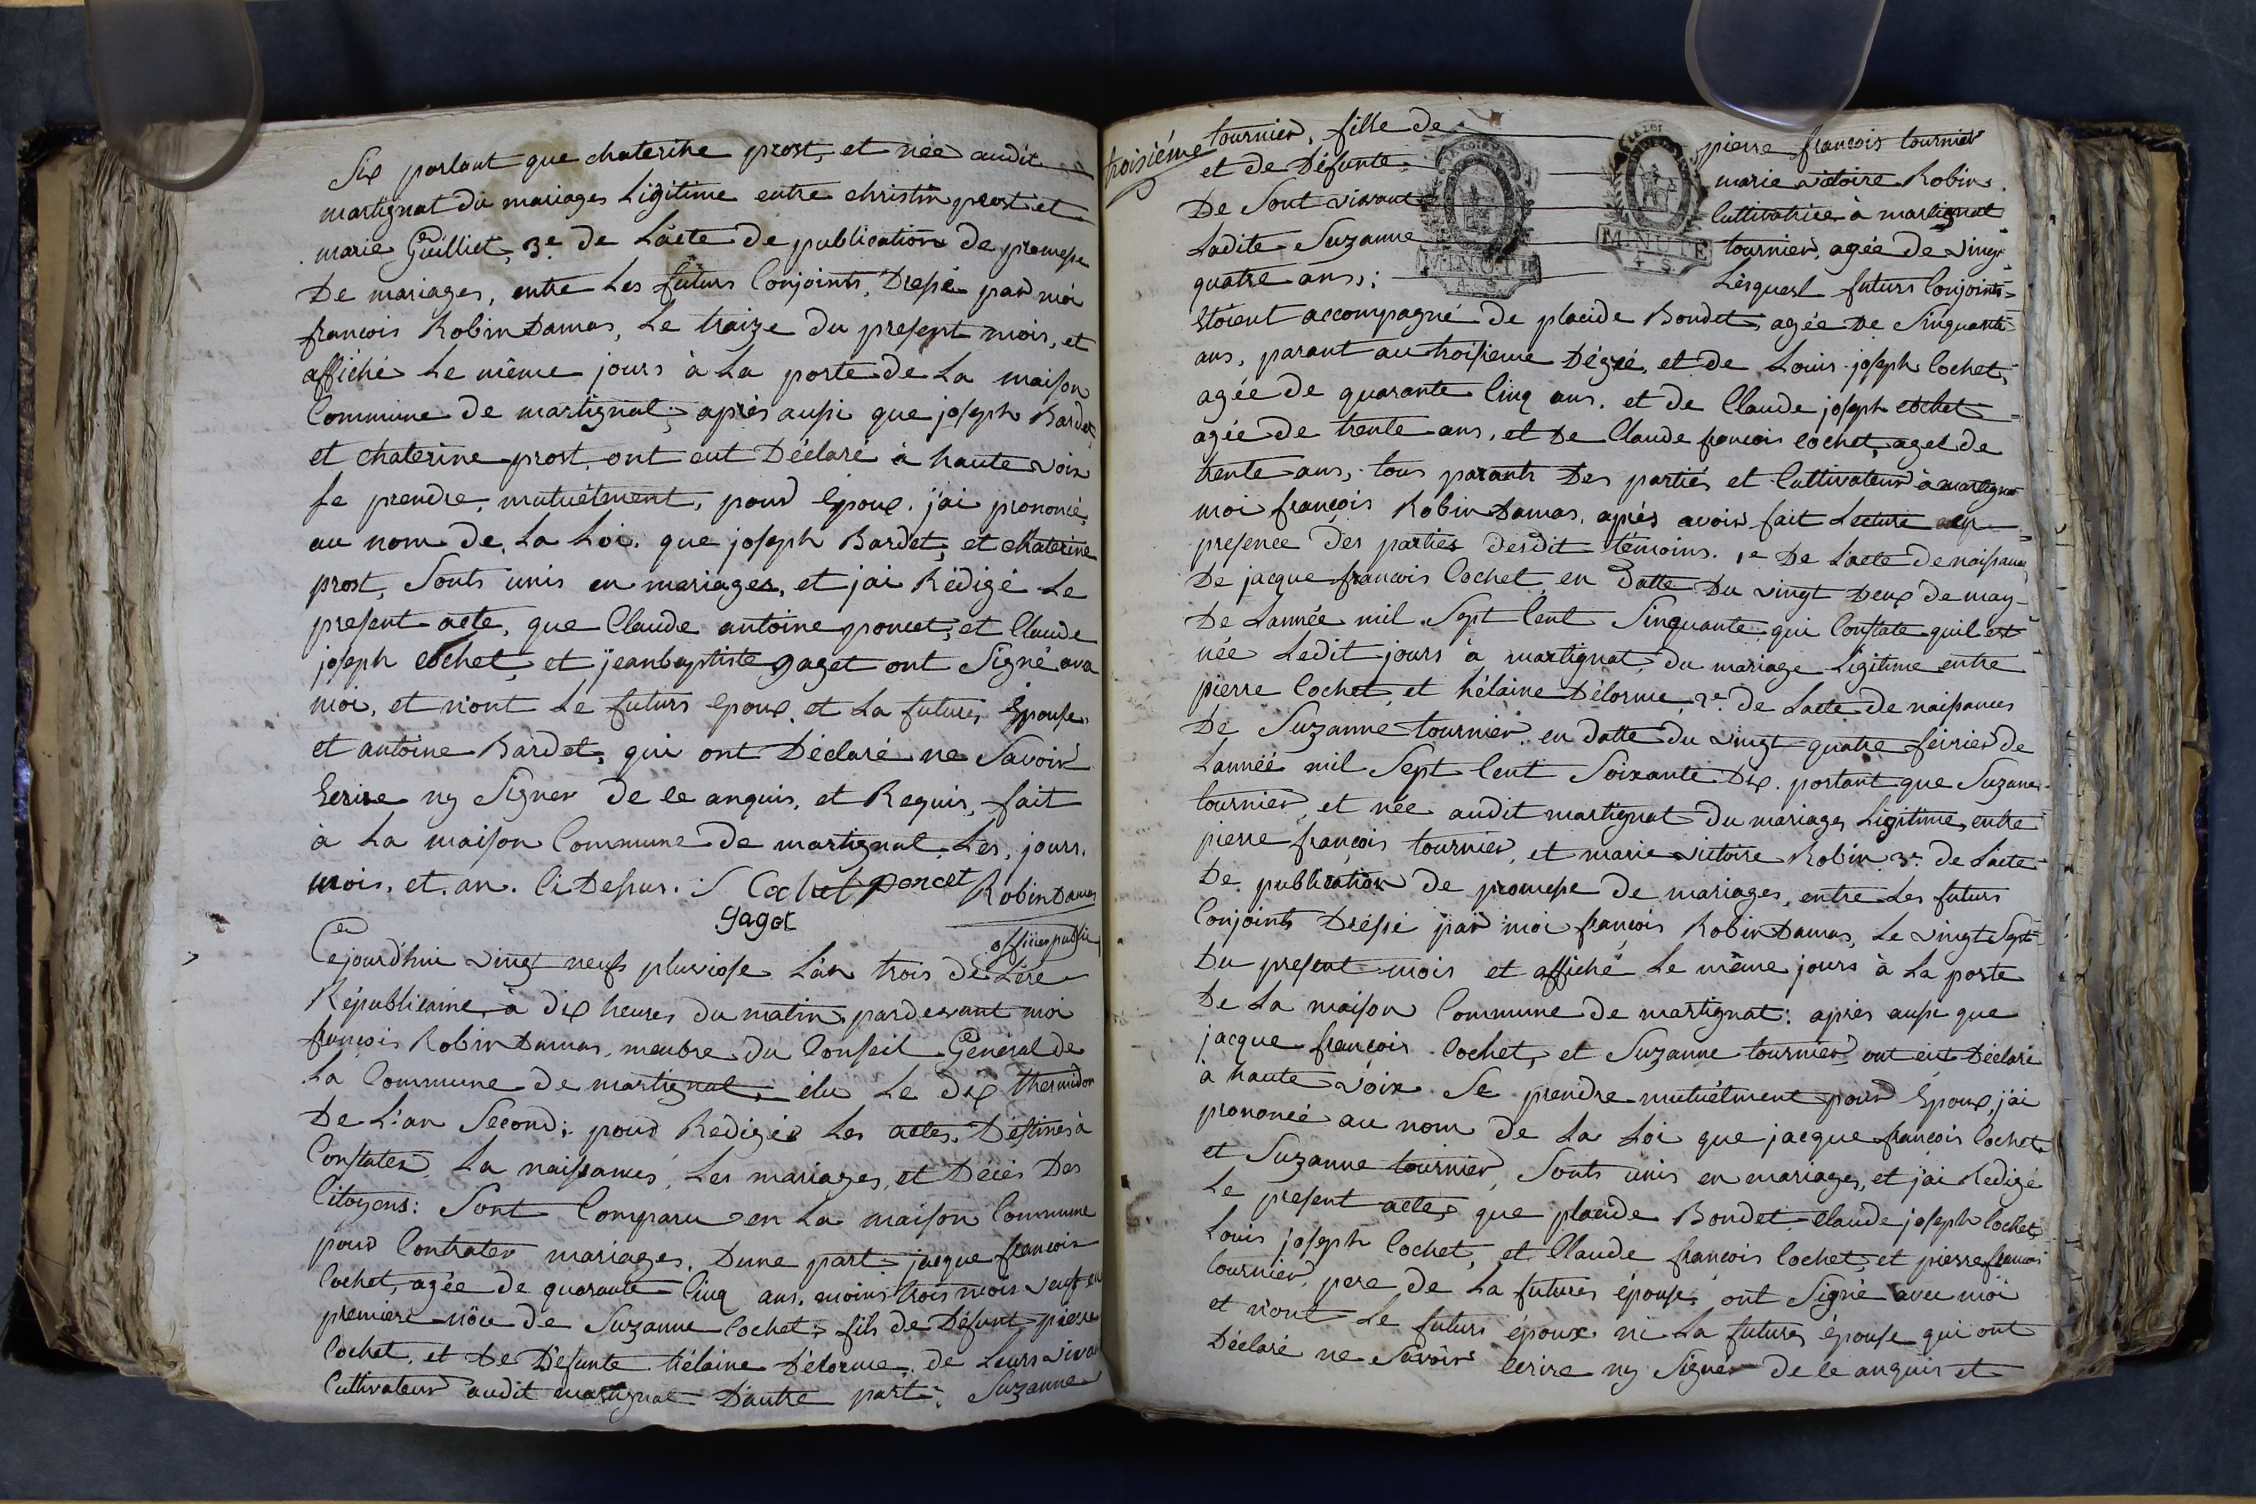 Six portant que chaterine prost, et née audit
martignat du mariages Ligitime entre christin prost et
marie Guilliet, 3e. de Lacte de publication de promesse
De mariages, entre Les futurs Conjoints, Dressé par moi
francois Robin Damas, Le traize du present mois, et
affiché Le même jours à La porte de La maison
Commune de martignat; après aussi que joseph Bardet,
et chaterine prost, ont eut Déclaré à haute voix
se prendre mutuélment, pour Epoux. j'ai prononcé,
au nom de La Loi. que joseph Bardet, et chaterine
prost, Sonts unis en mariages, et jai Rédigé Le
present acte, que Claude antoine poncet, et Claude
joseph Cochet, et jeanbaptiste gaget ont Signé ava
moi, et n'ont Le futurs Epoux et La futures Epouse,
et antoine Bardet, qui ont Déclaré ne Savoir
Ecrire ny Signer de ce anquis, et Requis, fait
à La maison Commune de martignat Les, jours.
mois, et, an. Ci Dessus. Cochet poncet Robin Damas
gaget officier public
Cejourd'hui vingt neufs pluviose L'an trois de L'ère
Républicaine à dix heures du matin pardevant moi
francois Robin Damas, menbre du Conseil Général de
La Commune de martignat, élu Le dix thermidor
De L'an Second; pour Rédiger Les actes, Destinés à
Constater La naissances, Les mariages, et Décès Des
Citoyens: Sont Comparu en La maison Commune
pour Contrater mariages, Dune part jacque francois
Cochet, agée de quarante Cinq ans, moins trois mois veuf en
premiere nôce de Suzanne Cochet, fils de Défunt pierre
Cochet, et De Défunte hélaine Délorme, de Leurs viva
Cultivateur audit martignat D'autre part; Suzanne
troisiéme
tournier, fille de pierre francois tournier
et de Défunte marie victoire Robin.
De Sont vivant Cultivatrice à martignat
Ladite Suzanne tournier, agée de vingt
quatre ans; Lesquesl futurs Conjoints
Etoient accompagné de placide Bondet, agée De Sinquante
ans, parant au troisieme Dégré, et de Louis joseph Cochet,
agée de quarante Cinq ans. et de Claude joseph Cochet
agée de trente ans, et De Claude francois Cochet, aget de
trente ans, tous parants Des partiés et Cultivateur à martignat
moi françois Robin Damas, après avoir fait Lecture en
presence des parties desdit témoins. 1e De Lacte de naissance
De jacque francois Cochet en Datte Du vingt Deux de may
De Lannée mil Sept Cent Sinquante qui Constate quil est
née Ledit jours à martignat du mariage Ligitime entre
pierre Cochet, et hélaine Délorme, 2e. de Lacte de naissances
De Suzanne tournier, en datte du vingt quatre février de
Lannéé mil Sept Cent Soixante Dix. portant que Suzanne
tournier, et née audit martignat Du mariages Ligitime, entre
pierre françois tournier, et marie victoire Robin 3e. de L'acte
De publication de promesse de mariages, entre Les futurs
Conjoints Dréssé par moi françois Robin Damas, Le vingt Sept
Du present mois et affiché Le même jours à La porte
De La maison Commune de martignat: après aussi que
jacque françois Cochet, et Suzanne tournier ont eut Déclaré
à haute voix Se prendre mutuélment pour Epoux, j'ai
prononcé au nom de La Loi que jacque françois Cochet
et Suzanne tournier, Sonts unis en mariages, et j'ai Redigé
Le present actes que placide Bondet Claude joseph Cochet
Louis joseph Cochet, et Claude francois Cochet et pierre francois
tournier, pere de La futures épouse, ont Signé avec moi
et n'ont Le futurs époux ni La futures épouse qui ont
Déclaré ne Savoir Ecrire ny Signer de ce anquis et
MINUTE
MINUTE